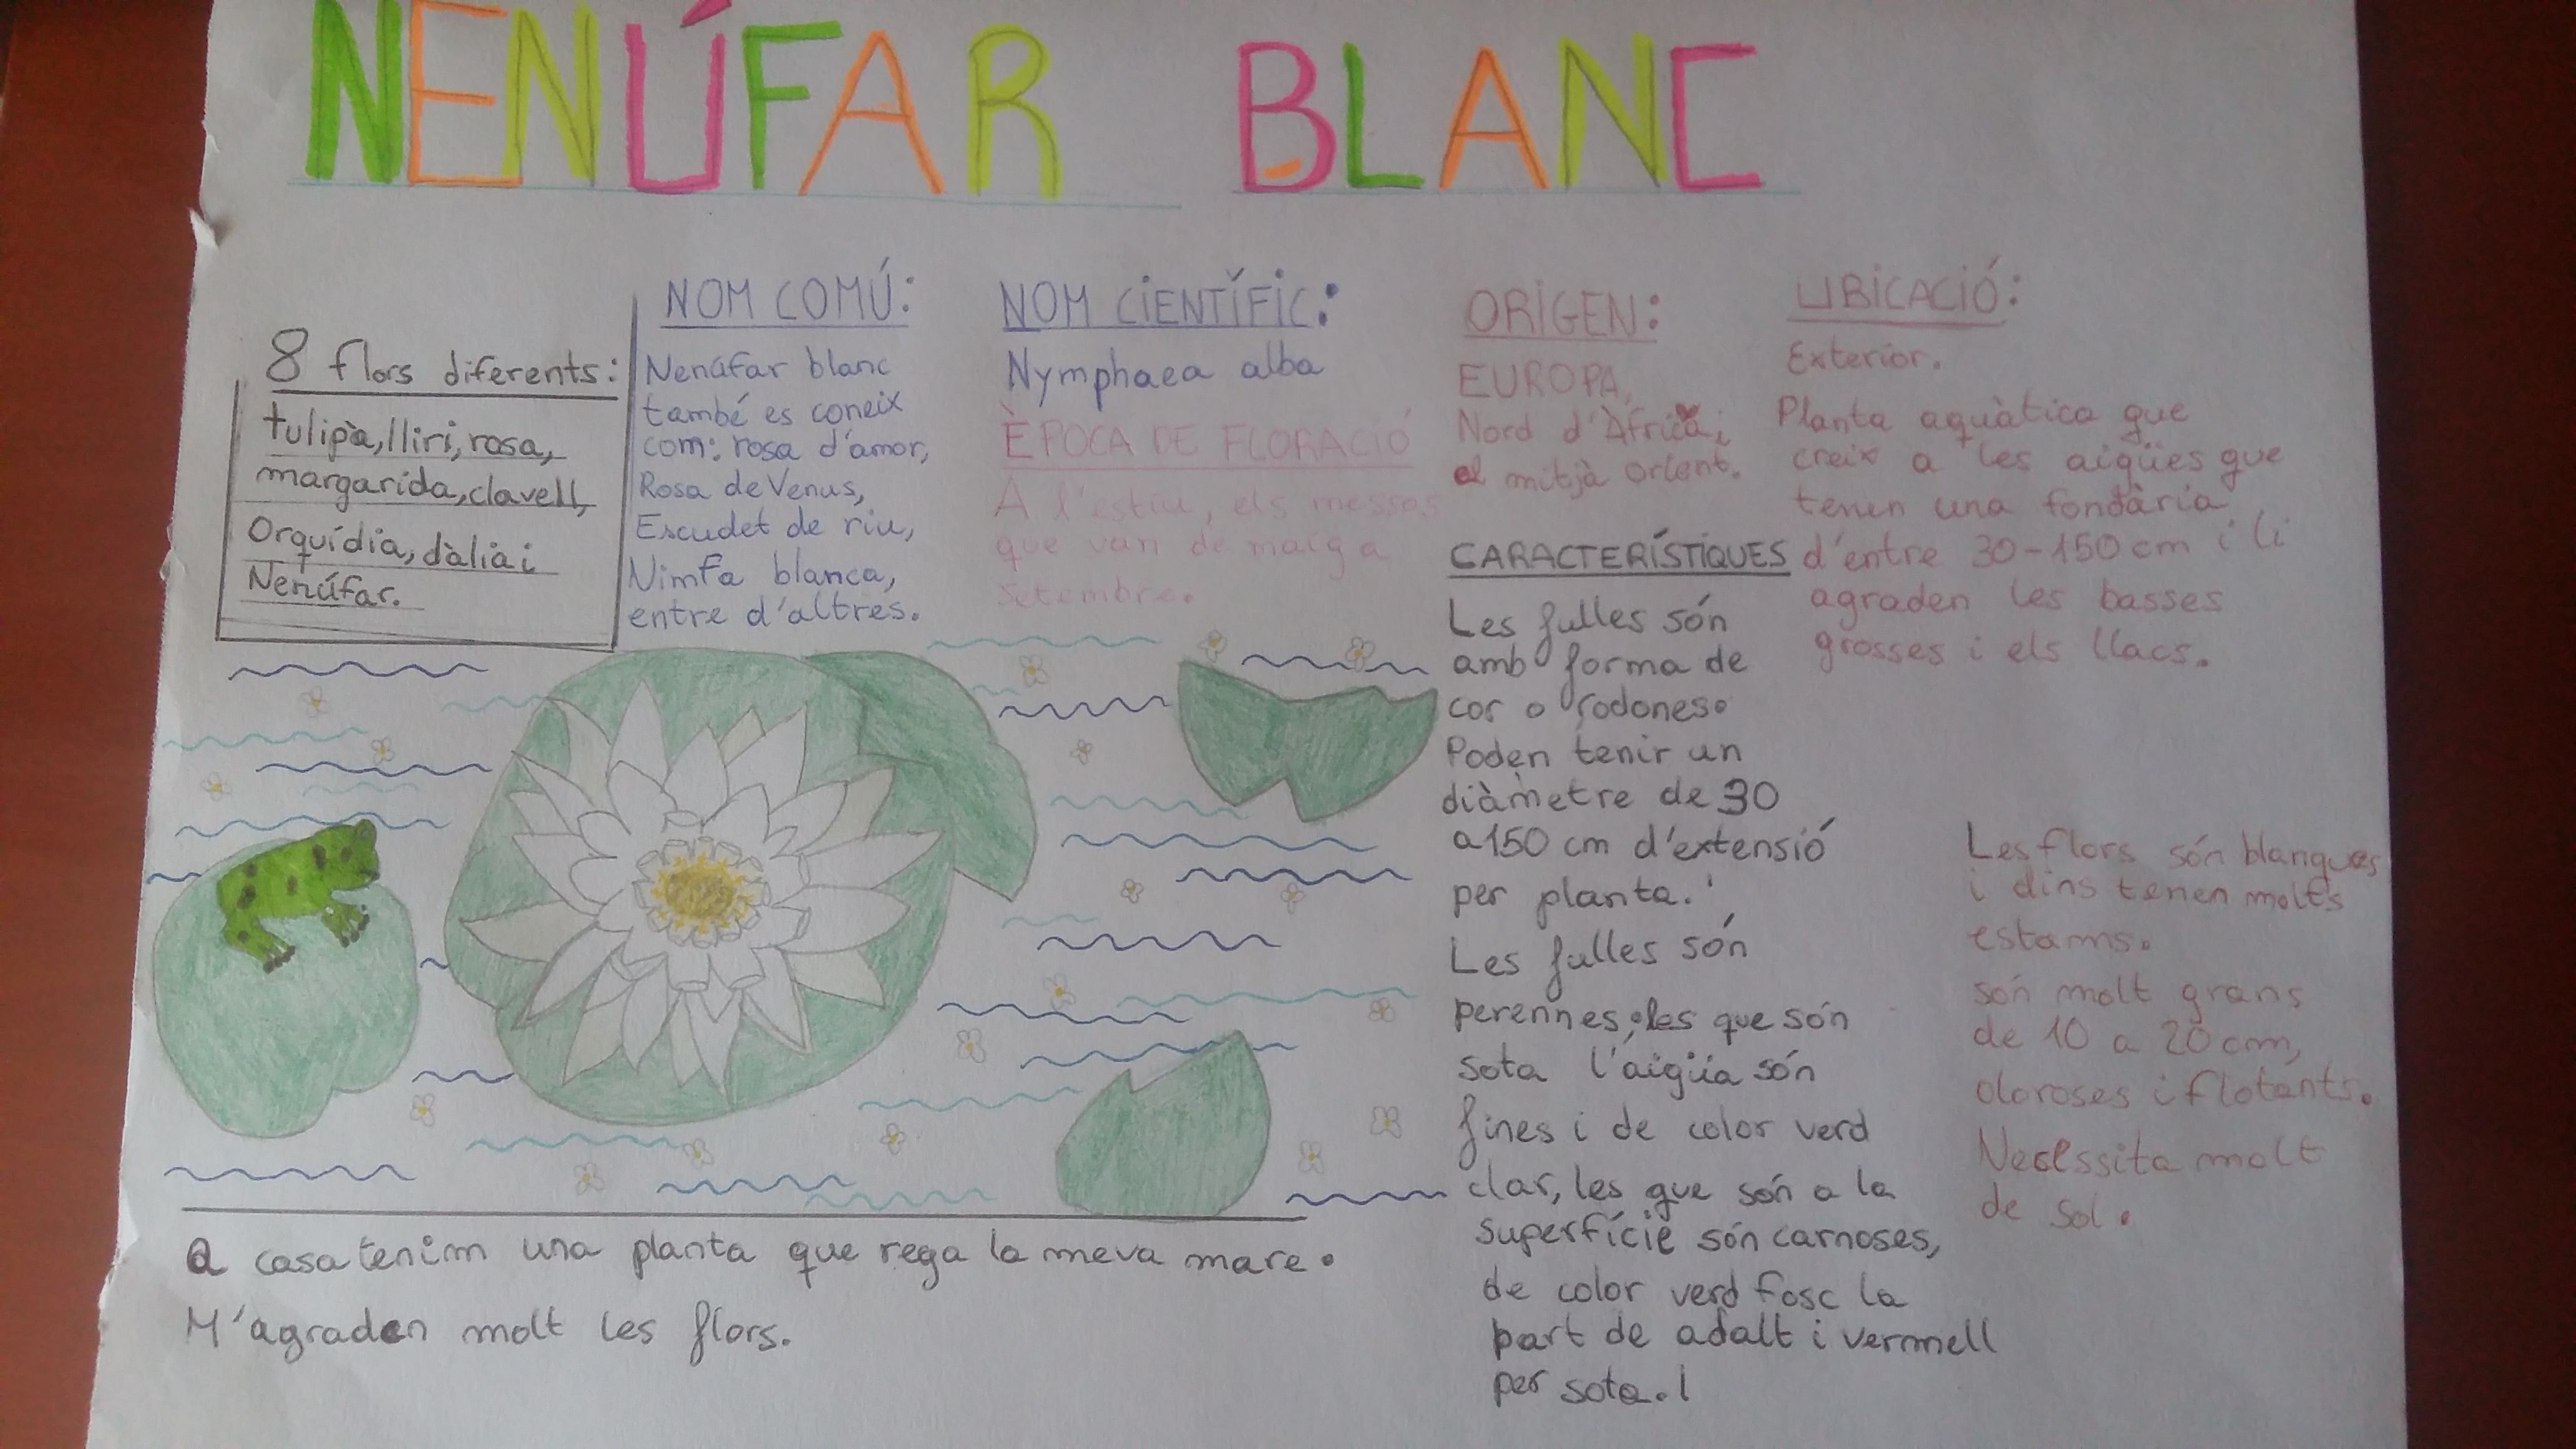 NENÚFAR BLANC
8 flors diferents:
tulipà, lliri, rosa,
margarida, clavell,
Orquídia, dàlia i
Nenúfar.
NOM COMÚ:
Nenúfar blanc
també es coneix
com: rosa d'amor,
Rosa de Venus,
Escudet de riu,
Nimfa blanca,
entre d'altres.
NOM CIENTÍFIC:
Nymphaea alba
ÈPOCA DE FLORACIÓ
A l'estiu, els messos
que van de maig a
setembre.
ORIGEN:
EUROPA,
Nord d'Àfrica i
el mitjà orient.
UBICACIÓ:
Exterior.
Planta aquàtica que
creix a les aigües que
tenen una fondària
d'entre 30-150 cm i li
agraden les basses
grosses i els llacs.
CARACTERÍSTIQUES
Les fulles són
amb forma de
cor o rodones.
Poden tenir un
diàmetre de 30
a 150 cm d'extensió
per planta.
Les fulles són
perennes; les que són
sota l'aigüa són
fines i de color verd
clar, les que són a la
superfície són carnoses,
de color verd fosc la
part de adalt i vermell
per sota.
Les flors són blanques
i dins tenen molts
estams.
són molt grans
de 10 a 20 cm,
oloroses i flotants.
Necessita molt
de sol.
A casa tenim una planta que rega la meva mare.
M'agraden molt les flors.